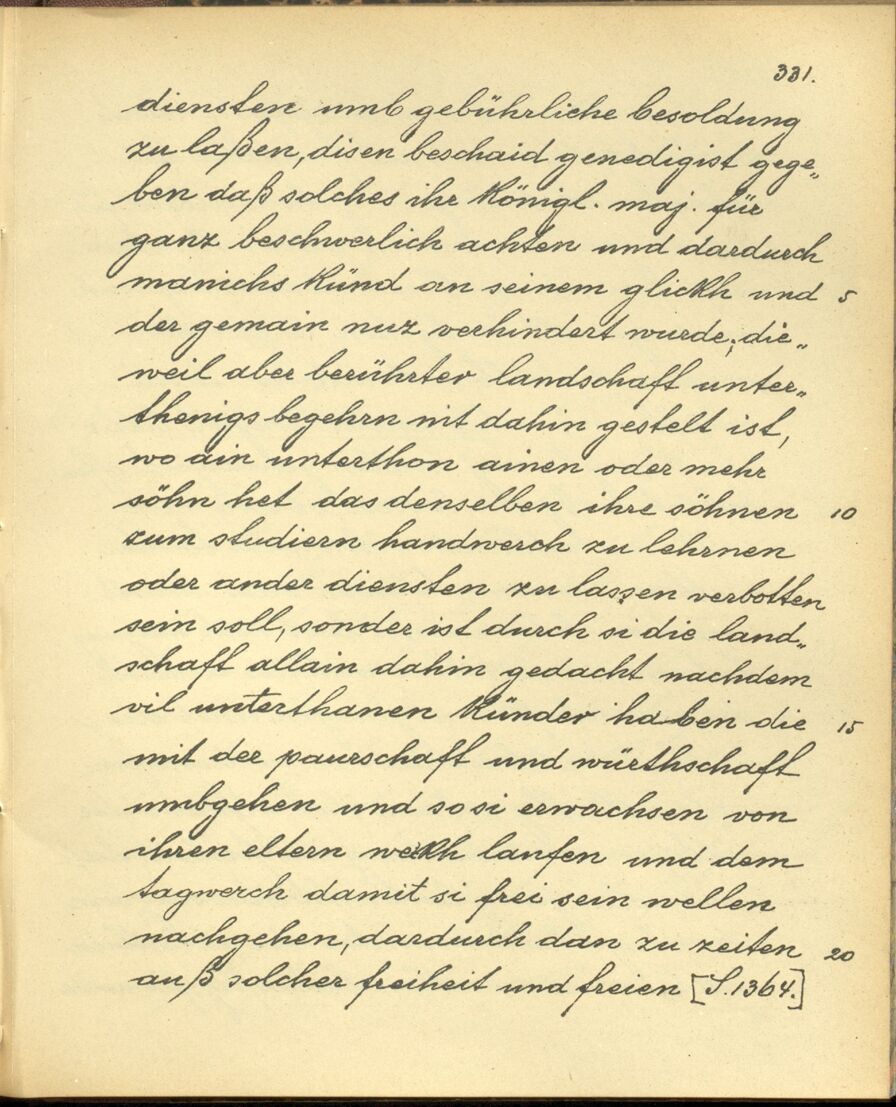 331.
diensten umb gebührliche besoldung
zu laßen, disen beschaid genedigist gege„
ben daß solches ihr Königl. maj. für
ganz beschwerlich achten und dardurch
manichs Künd an seinem glickh und 5
der gemain nuz verhindert wurde; die„
weil aber berührter landschaft unter„
thenigs begehrn nit dahin gestelt ist,
wo ain unterthon ainen oder mehr
söhn het das denselben ihre söhnen 10
zum studiern handwerch zu lehrnen
oder ander diensten zu lassen verbotten
sein soll, sonder ist durch si die land„
schaft allain dahin gedacht nachdem
vil unterthanen Künder haben die 15
mit der paurschaft und würthschaft
umbgehen und so si erwachsen von
ihren eltern wekh laufen und dem
tagwerch damit si frei sein wellen
nachgehen, dardurch dan zu zeiten 20
auß solcher freiheit und freien [S. 1364.]